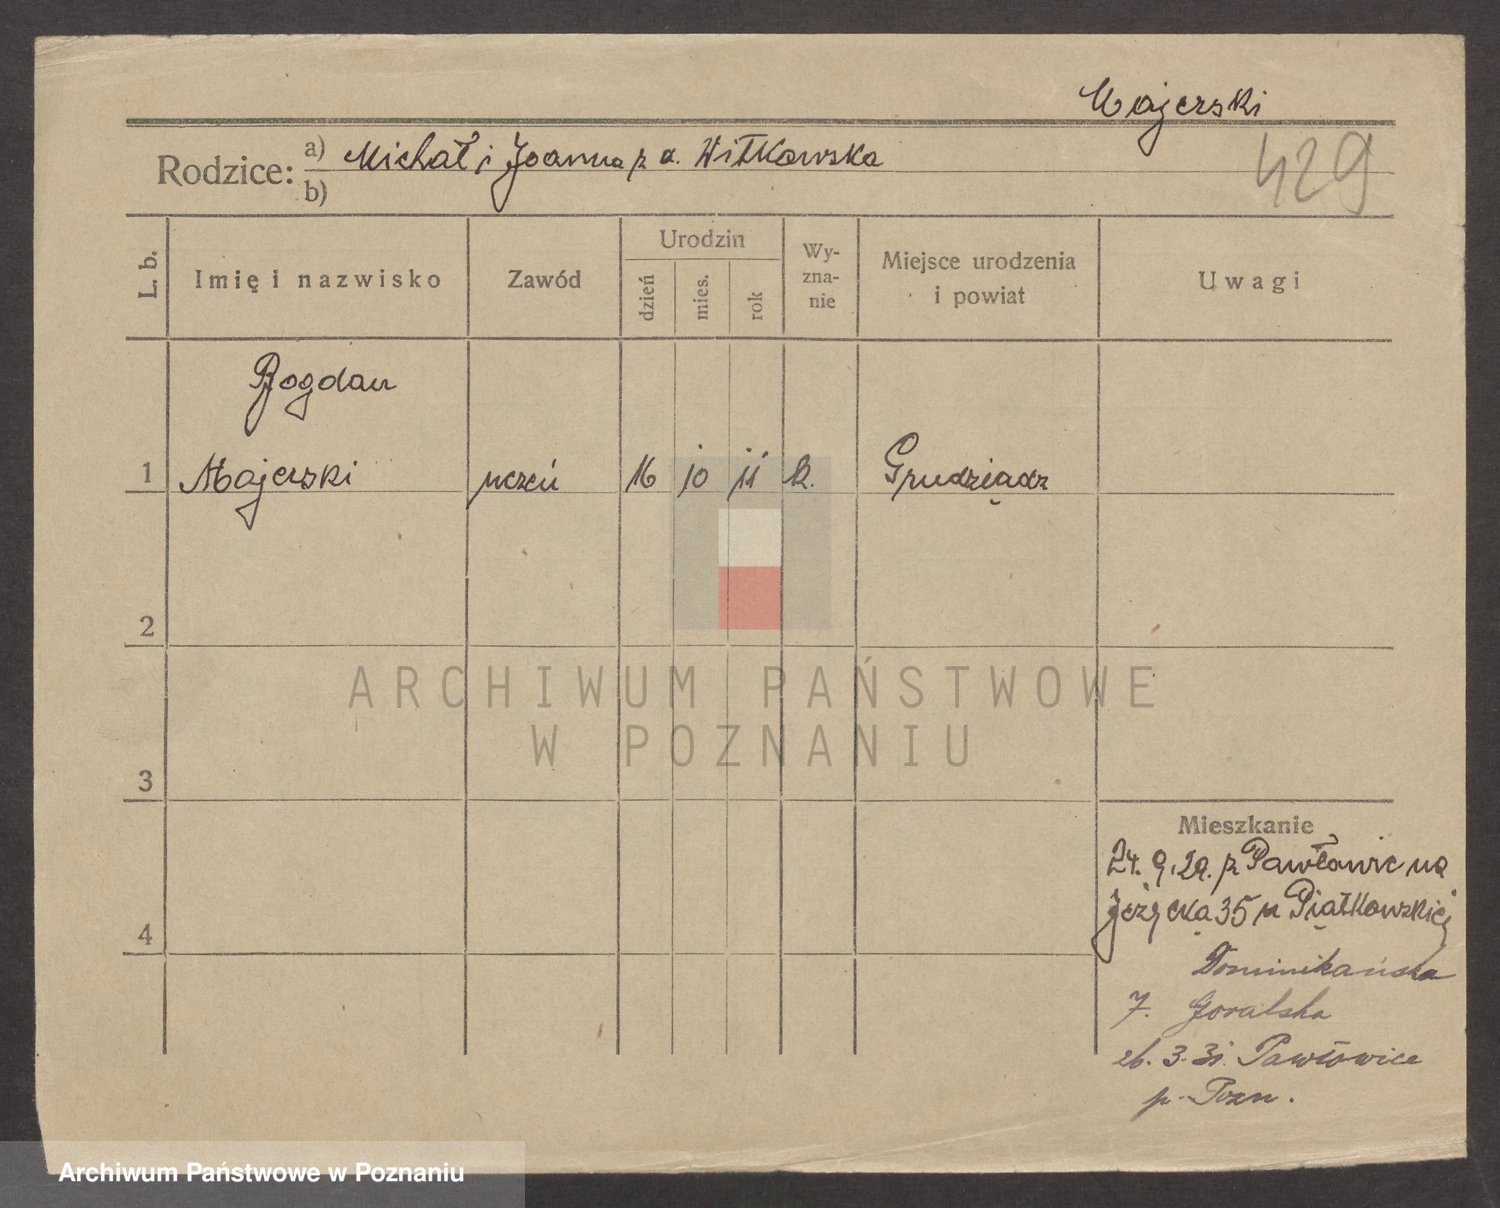 Majerski
429
Rodzice: a) Michał i Joanna z d. Witkowska
b)
L. b.
Imię i nazwisko
Zawód
Urodzin
dzień
mies.
rok
Wy-
zna-
nie
Miejsce urodzenia
i powiat
Uwagi
Bogdan
1 Majerski uczeń 16 10 11 k. Grudziądz
2
3
4
ARCHIWUM PAŃSTWOWE
W POZNANIU
Mieszkanie
24. 9. 29. z Pawłowic na
Jeżycka 35 u Piątkowskiej
Dominikańska
7. Goralska
26. 3. 31. Pawłowice
p. Pozn.
Archiwum Państwowe w Poznaniu